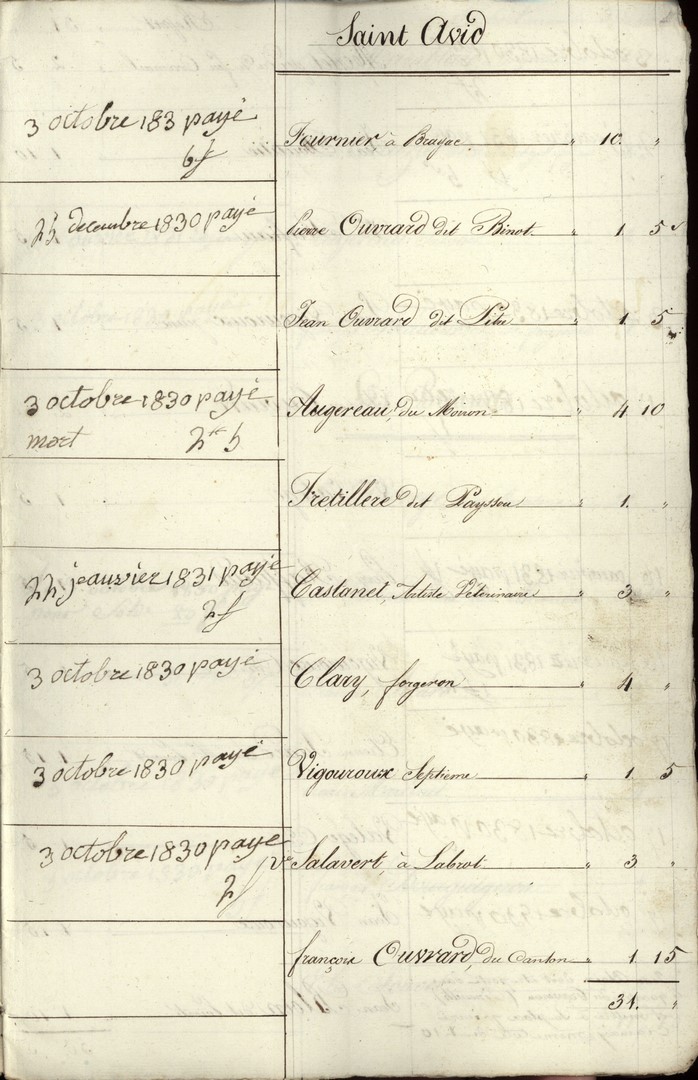 Saint Avid
3 octobre 183 payé
6f
Fournier à Brayac " 10. "
25 decembre 1830 payé
Pierre Ouvrard dit Binot " 1 5
Jean Ouvrard dit Litre " 1. 5
3 octobre 1830 payé
mort 2# 5
Augereau, du Moiron " 4 10
Fretillere dit Laysson " 1. "
22 jeanvier 1831 payé
2f
Castanet, Artiste Vétérinaire " 3 "
3 octobre 1830 payé
Clary, forgeron " 4 "
3 octobre 1830 payé
Vigouroux Septième " 1 5
3 octobre 1830 payé
2f
Salavert, à Labrot " 3 "
françois Ouvrard, du Canton " 1 15
31. "